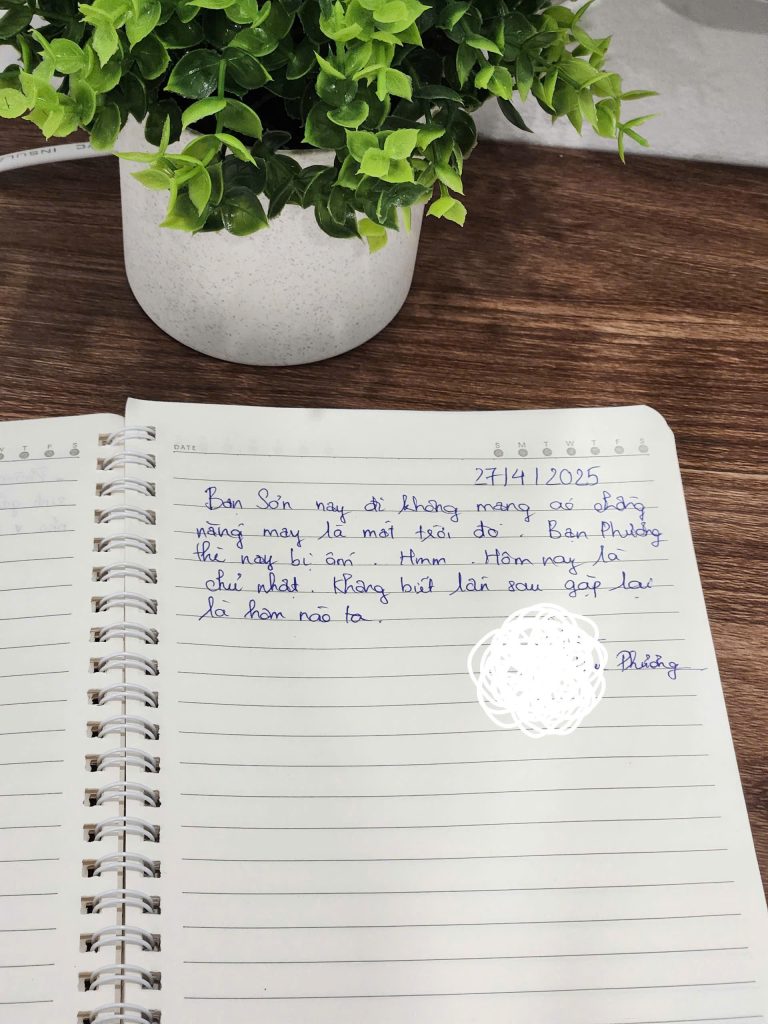 VC INSULA
DATE S M T W T F S
W T F S
27/4/2025
Bạn Sơn nay đi không mang áo chống
nắng may là mát trời đó. Bạn Phương
thì nay bị ốm. Hmm. Hôm nay là
chủ nhật. Không biết lần sau gặp lại
là hôm nào ta.
Phương